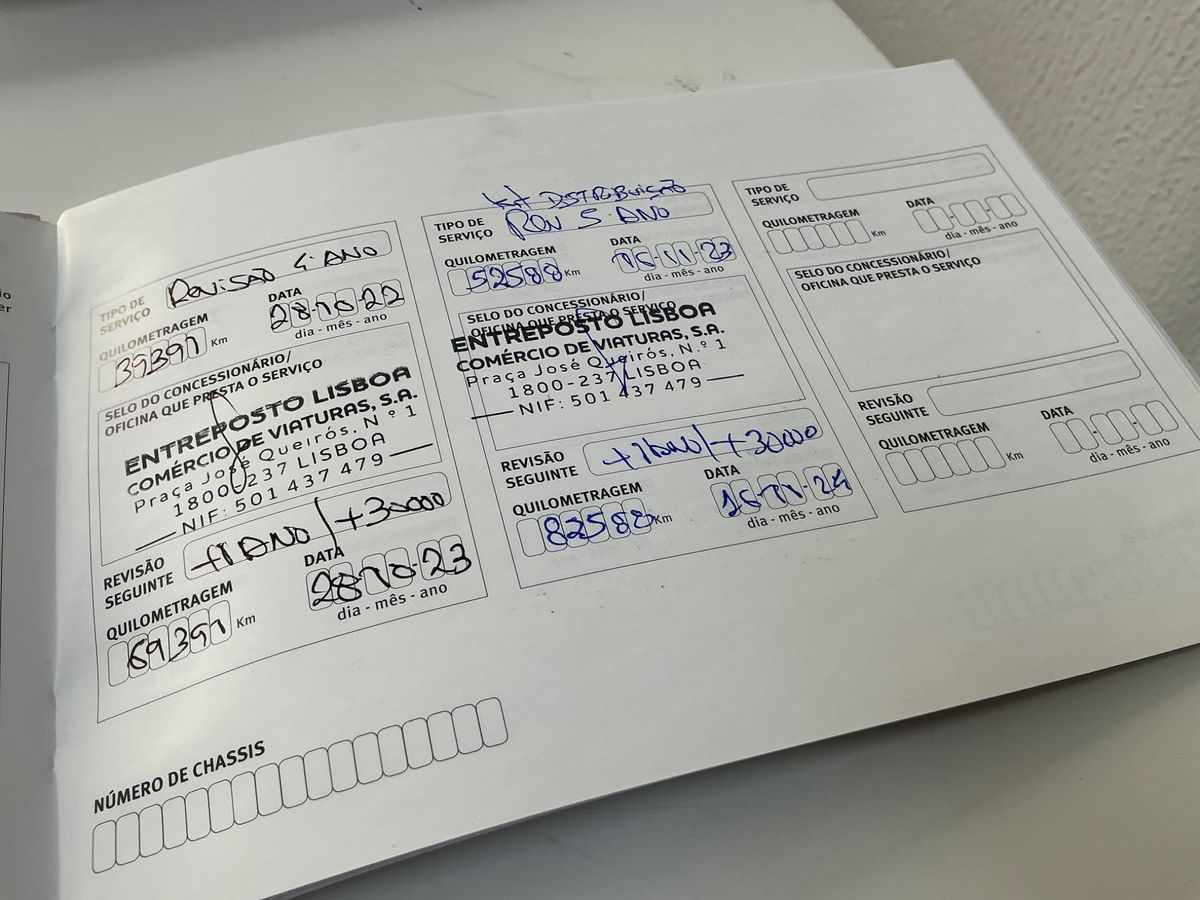 o
er
TIPO DE SERVIÇO Revisão 4º ANO
QUILOMETRAGEM
39391 Km
DATA
28-10-22
dia - mês - ano
SELO DO CONCESSIONÁRIO/
OFICINA QUE PRESTA O SERVIÇO
ENTREPOSTO LISBOA
COMÉRCIO DE VIATURAS, S.A.
Praça José Queirós, N.º 1
1800-237 LISBOA
NIF: 501 437 479
REVISÃO SEGUINTE +1 ANO/+30000
QUILOMETRAGEM
69391 Km
DATA
28-10-23
dia - mês - ano
Kit DISTRIBUIÇÃO
TIPO DE SERVIÇO Rev 5º ANO
QUILOMETRAGEM
52588 Km
DATA
dia - mês - ano
SELO DO CONCESSIONÁRIO/
OFICINA QUE PRESTA O SERVIÇO
ENTREPOSTO LISBOA
COMÉRCIO DE VIATURAS, S.A.
Praça José Queirós, N.º 1
1800-237 LISBOA
NIF: 501 437 479
REVISÃO SEGUINTE +1 ANO/+30000
QUILOMETRAGEM
82588 Km
DATA
dia - mês - ano
TIPO DE SERVIÇO
QUILOMETRAGEM
Km
DATA
dia - mês - ano
SELO DO CONCESSIONÁRIO/
OFICINA QUE PRESTA O SERVIÇO
REVISÃO SEGUINTE
QUILOMETRAGEM
Km
DATA
dia - mês - ano
NÚMERO DE CHASSIS